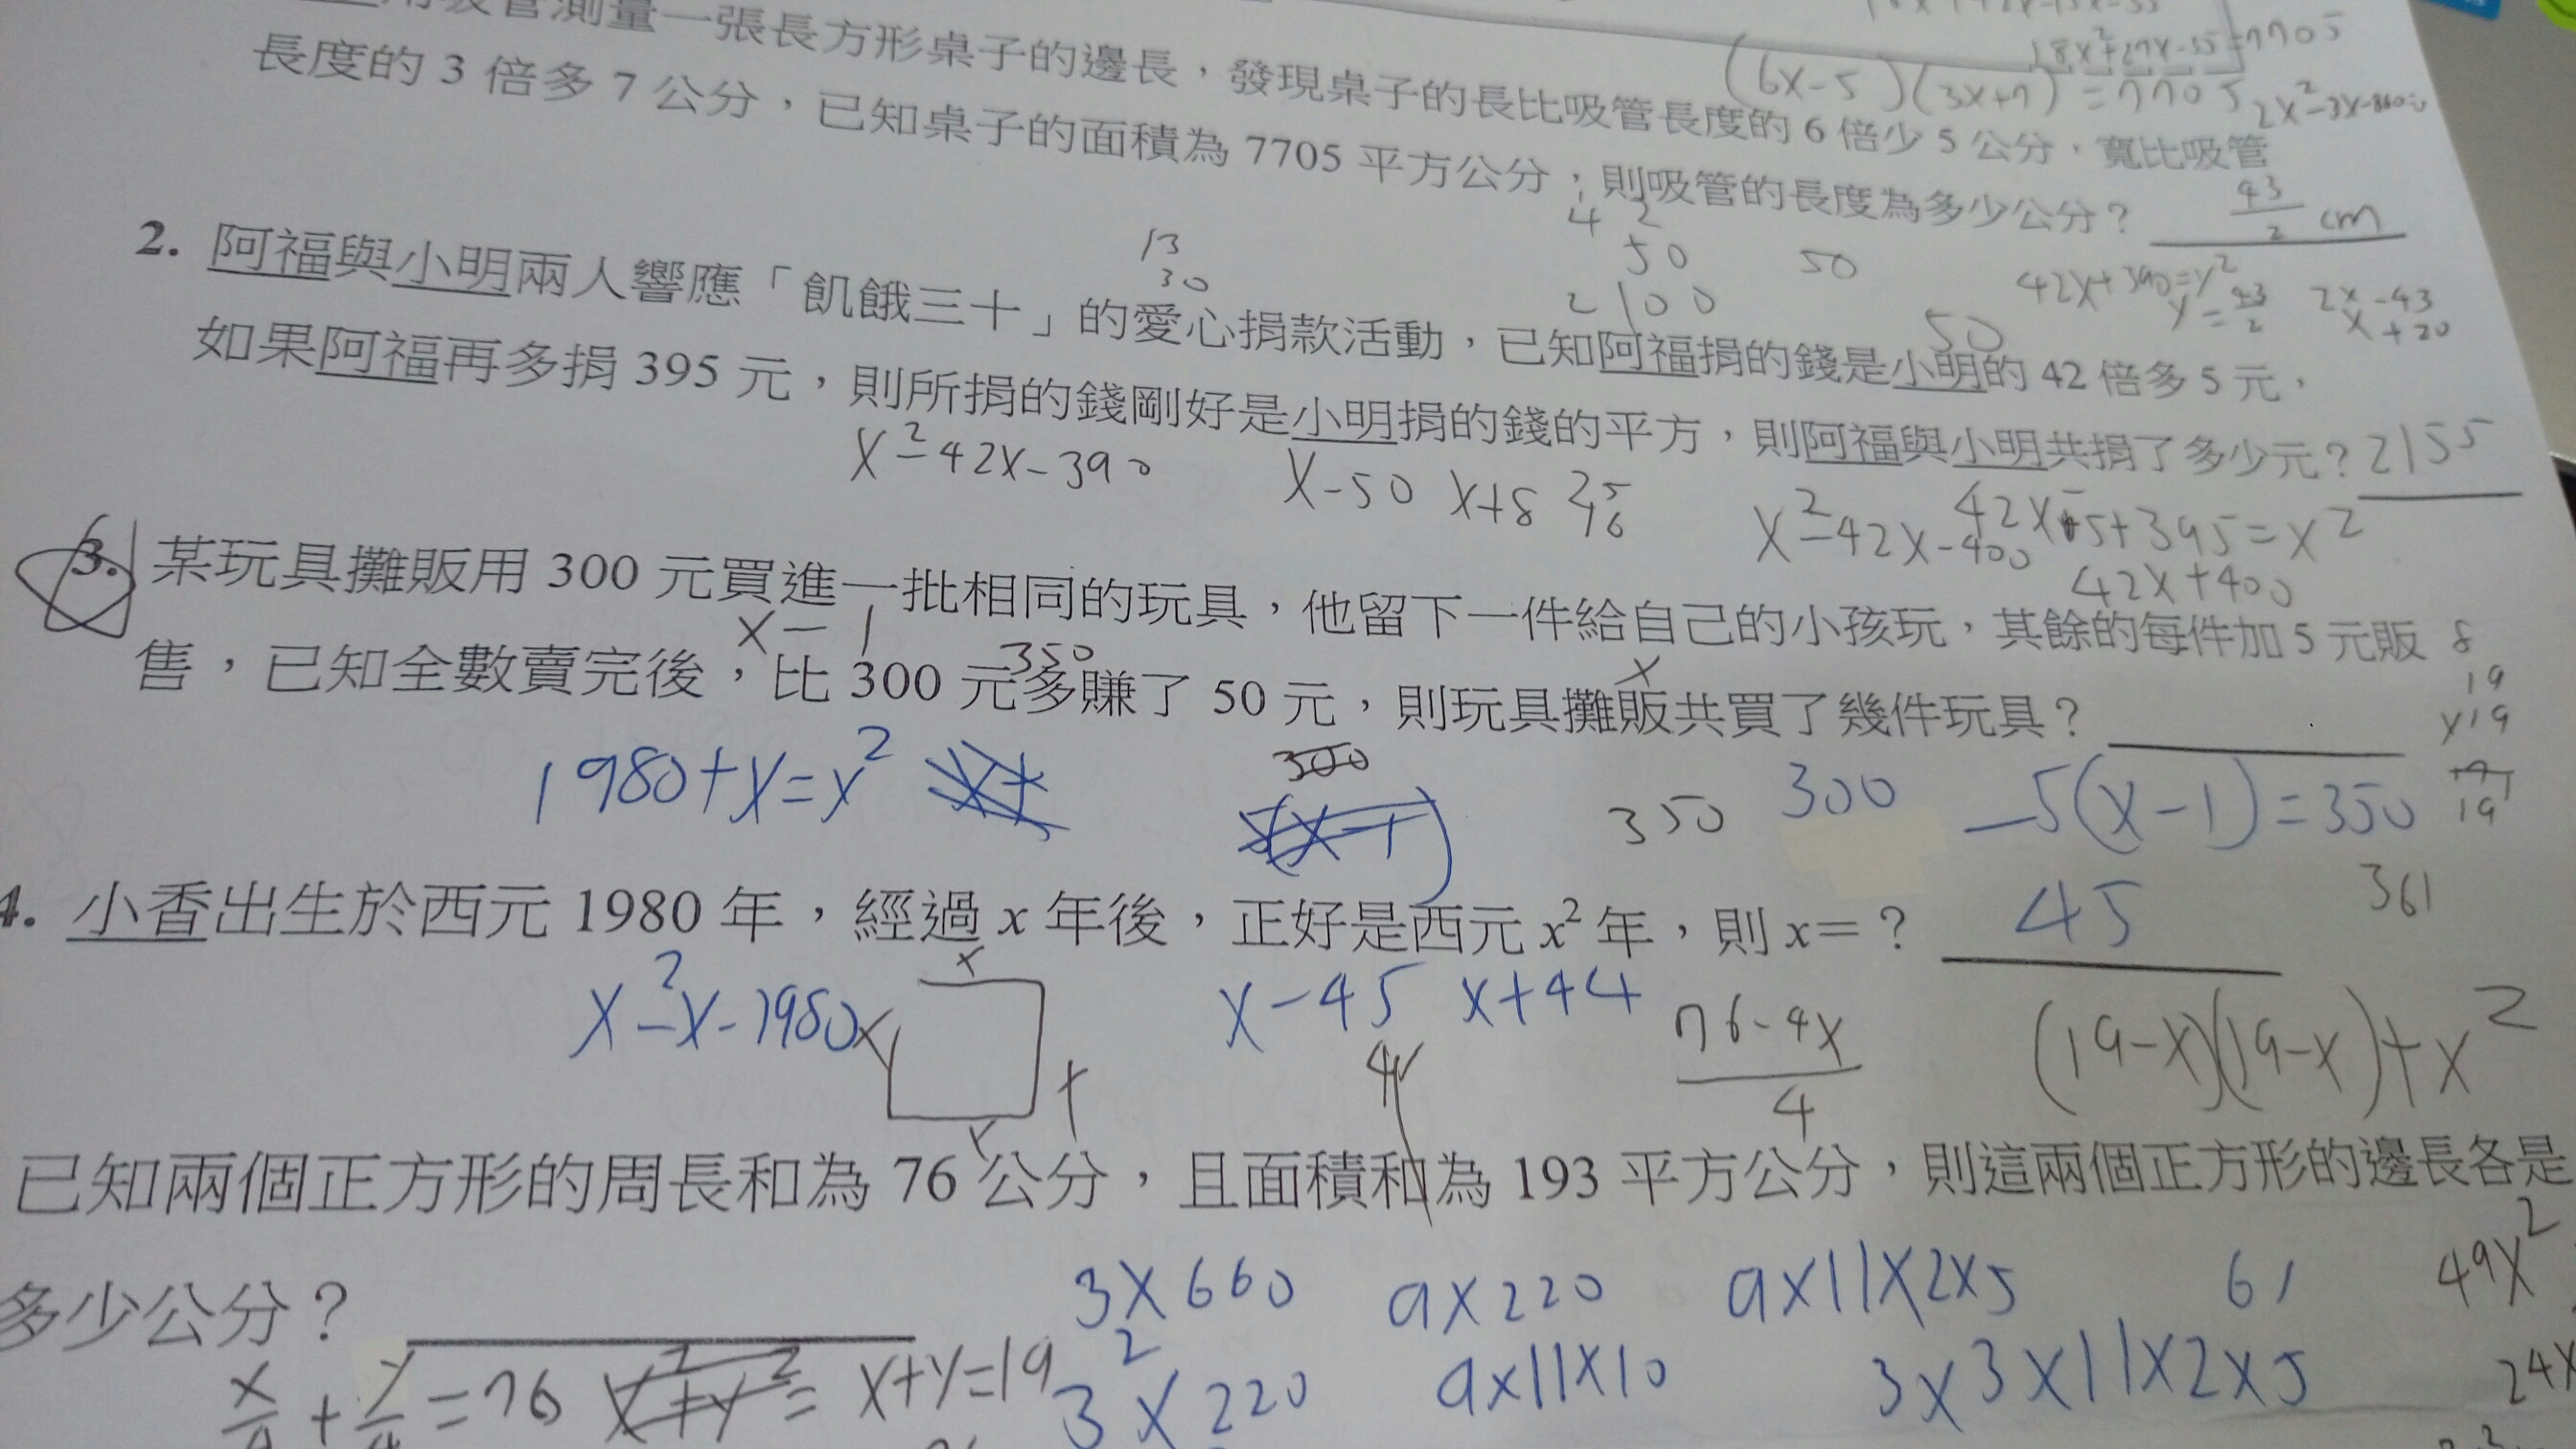 18x²+27x-35=7705
(6x-5)(3x+7)=7705
2x²-3x-860=0
用吸管測量一張長方形桌子的邊長，發現桌子的長比吸管長度的6倍少5公分，寬比吸管
長度的3倍多7公分，已知桌子的面積為7705平方公分，則吸管的長度為多少公分？ 43/2 cm
13
30
4 2
50
2100
50
50
42x+390=x²
x=43/2
2x -43
x +20
2. 阿福與小明兩人響應「飢餓三十」的愛心捐款活動，已知阿福捐的錢是小明的42倍多5元，
如果阿福再多捐395元，則所捐的錢剛好是小明捐的錢的平方，則阿福與小明共捐了多少元？ 2155
x²-42x-390
x-50 x+8
42x+5+395=x²
x²-42x-400
42x+400
3. 某玩具攤販用300元買進一批相同的玩具，他留下一件給自己的小孩玩，其餘的每件加5元販
x-1
350
x
售，已知全數賣完後，比300元多賺了50元，則玩具攤販共買了幾件玩具？
8
19
x19
19
361
1980+x=x²
350
300
-5(x-1)=350
4. 小香出生於西元1980年，經過x年後，正好是西元x²年，則x=？ 45
x²-x-1980
x
x
x
x
x-45 x+44
76-4x/4
(19-x)(19-x)+x²
已知兩個正方形的周長和為76公分，且面積和為193平方公分，則這兩個正方形的邊長各是
多少公分？
3x660
9x220
9x11x2x5
61
49x²
x/4+y/4=76
x²+y²=
x+y=19
3²x220
9x11x10
3x3x11x2x5
24x